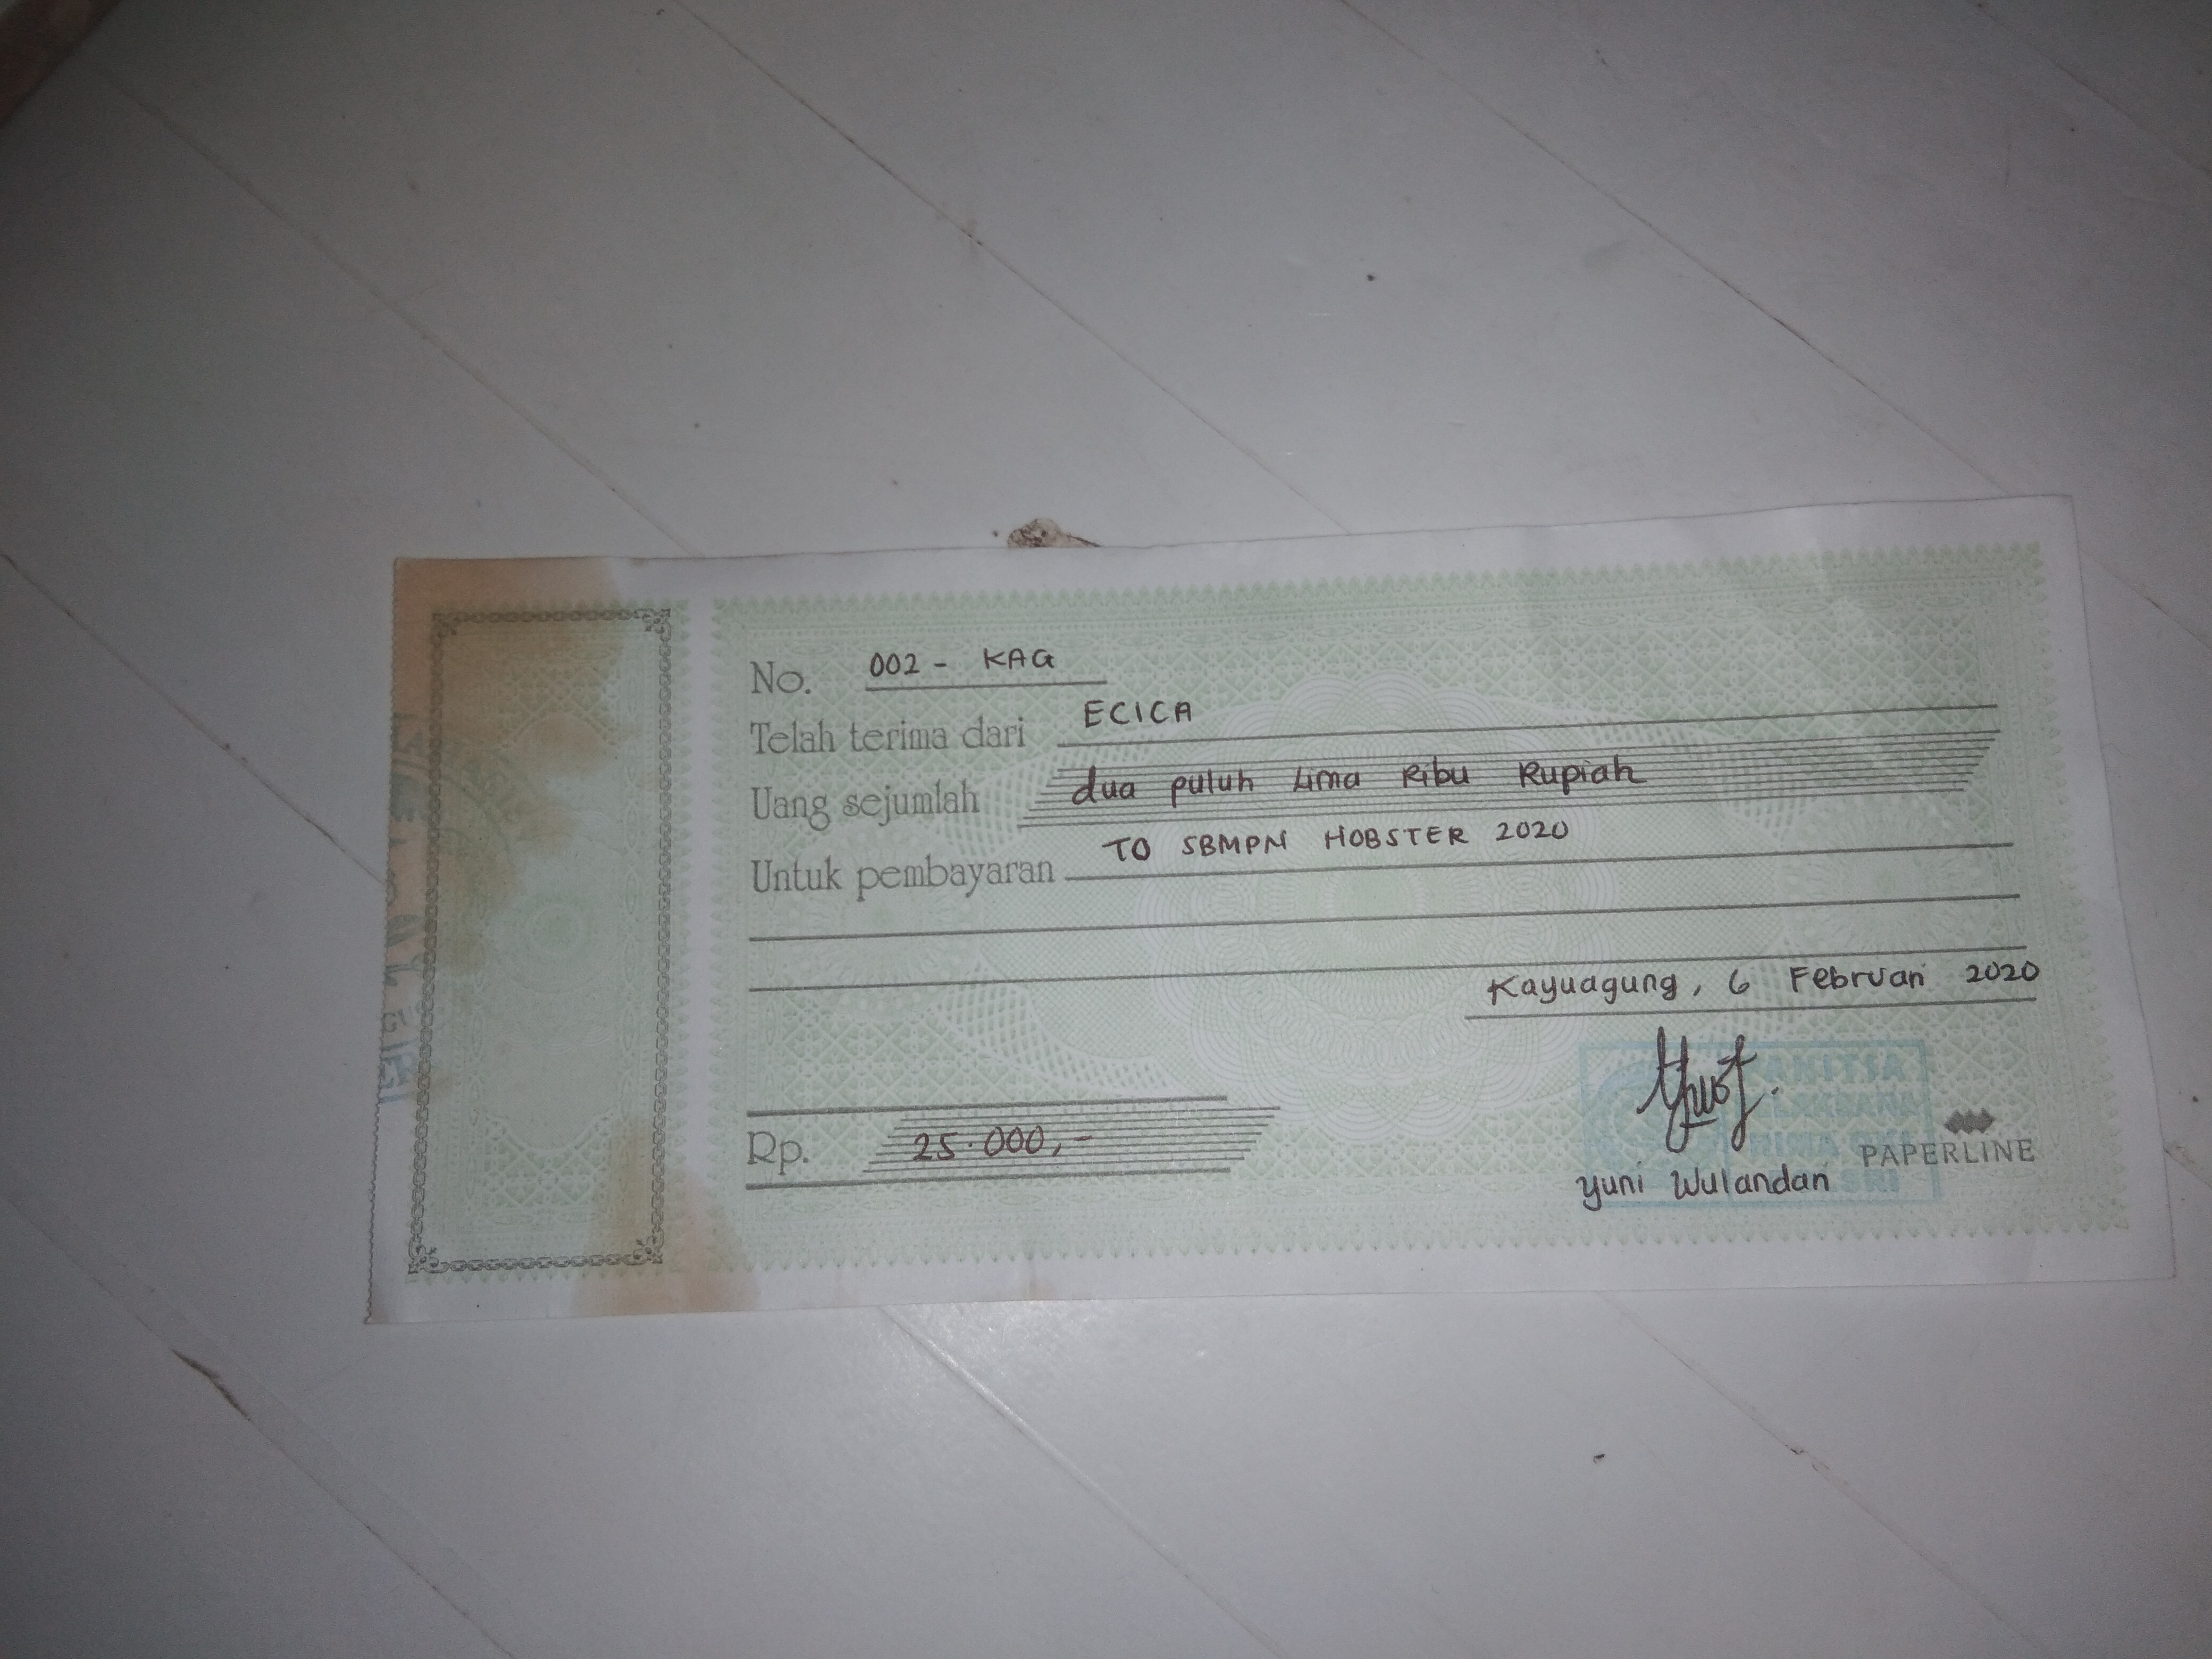 No. 002 - KAG
Telah terima dari ECICA
Uang sejumlah dua puluh Lima Ribu Rupiah
Untuk pembayaran TO SBMPN HOBSTER 2020
Kayuagung, 6 Februari 2020
Rp. 25.000,-
PANITIA
SRI
PAPERLINE
Yuni Wulandari